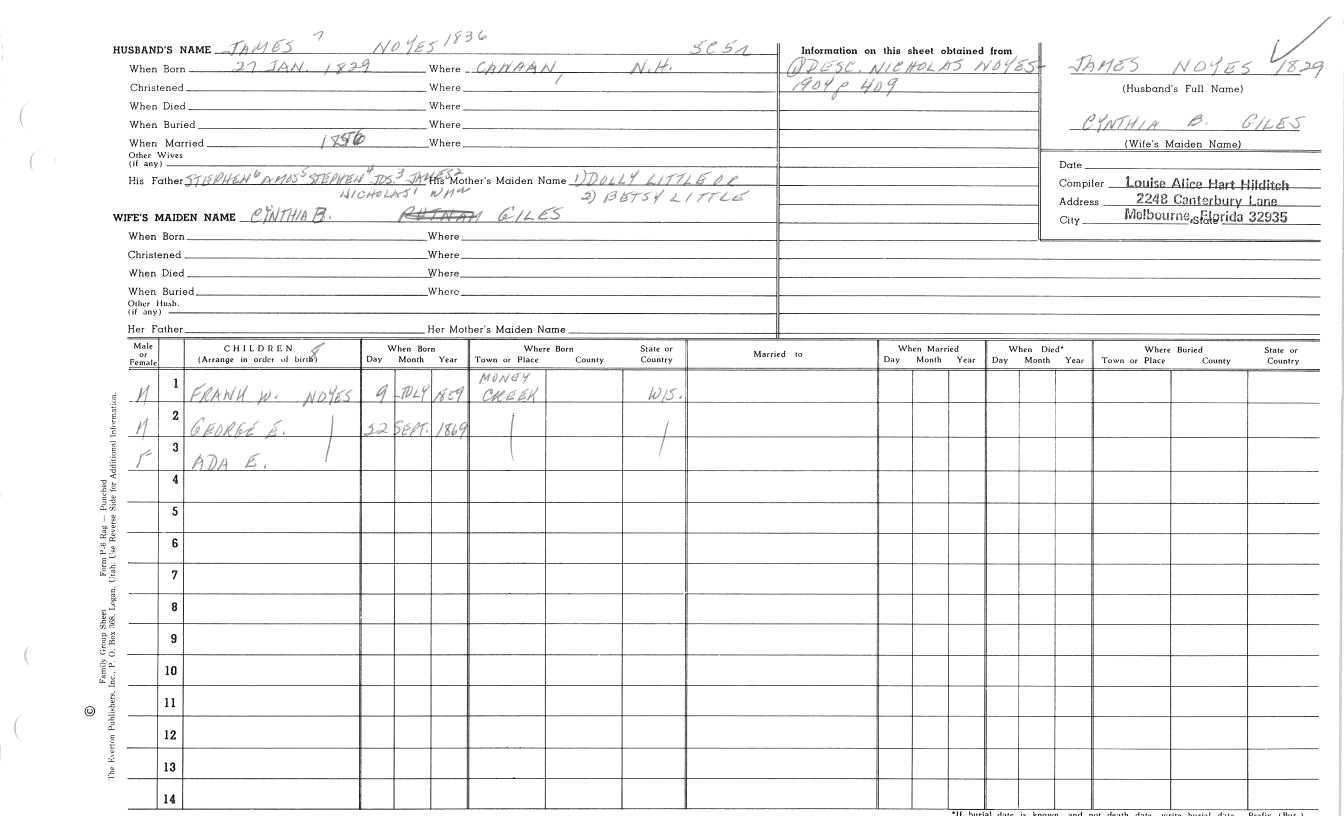 HUSBAND'S NAME JAMES 7 NOYES 1836
When Born 27 JAN. 1829 Where CANAAN, N.H.
Christened Where
When Died Where
When Buried Where
When Married 1856 Where
Other Wives
(if any)
His Father STEPHEN 6 AMOS 5 STEPHEN 4 JOS 3 JAMES 2 His Mother's Maiden Name 1) DOLLY LITTLE OR
NICHOLAS 1 2) BETSY LITTLE
WIFE'S MAIDEN NAME CYNTHIA B. PUTNAM GILES
When Born Where
Christened Where
When Died Where
When Buried Where
Other Husb.
(if any)
Her Father Her Mother's Maiden Name
Information on this sheet obtained from
① DESC. NICHOLAS NOYES-
1904 p 409
JAMES NOYES 1829
(Husband's Full Name)
CYNTHIA B. GILES
(Wife's Maiden Name)
Date
Compiler Louise Alice Hart Hilditch
Address 2248 Canterbury Lane
City Melbourne, State Florida 32935
Male or Female CHILDREN 8 (Arrange in order of birth) When Born Day Month Year Where Born Town or Place County State or Country Married to When Married Day Month Year When Died* Day Month Year Where Buried Town or Place County State or Country
1 M FRANK W. NOYES 9 JULY 1859 MONEY CREEK WIS.
2 M GEORGE E. 22 SEPT. 1869
3 F ADA E.
4
5
6
7
8
9
10
11
12
13
14
Family Group Sheet Form P-6 Rag — Punched
© The Everton Publishers, Inc., P. O. Box 368, Logan, Utah. Use Reverse Side for Additional Information.
*If burial date is known, and not death date, write burial date. Prefix (Bur.)